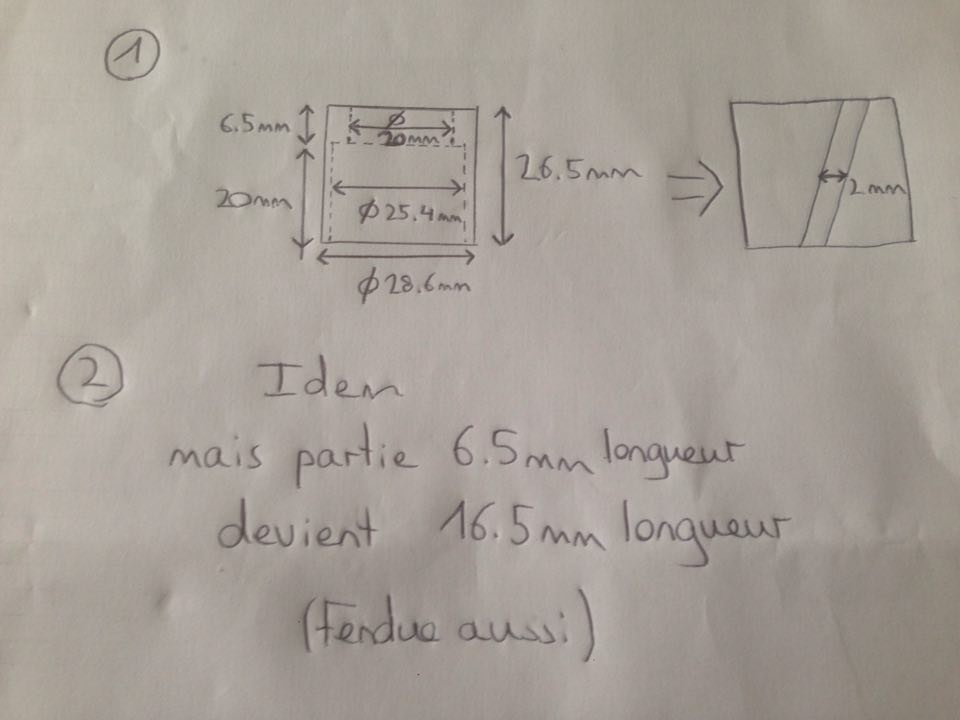 1
6.5mm
ϕ
20mm
26.5mm
20mm
ϕ25.4mm
2mm
ϕ28.6mm
2
Idem
mais partie 6.5mm longueur
devient 16.5mm longueur
(Fendue aussi)